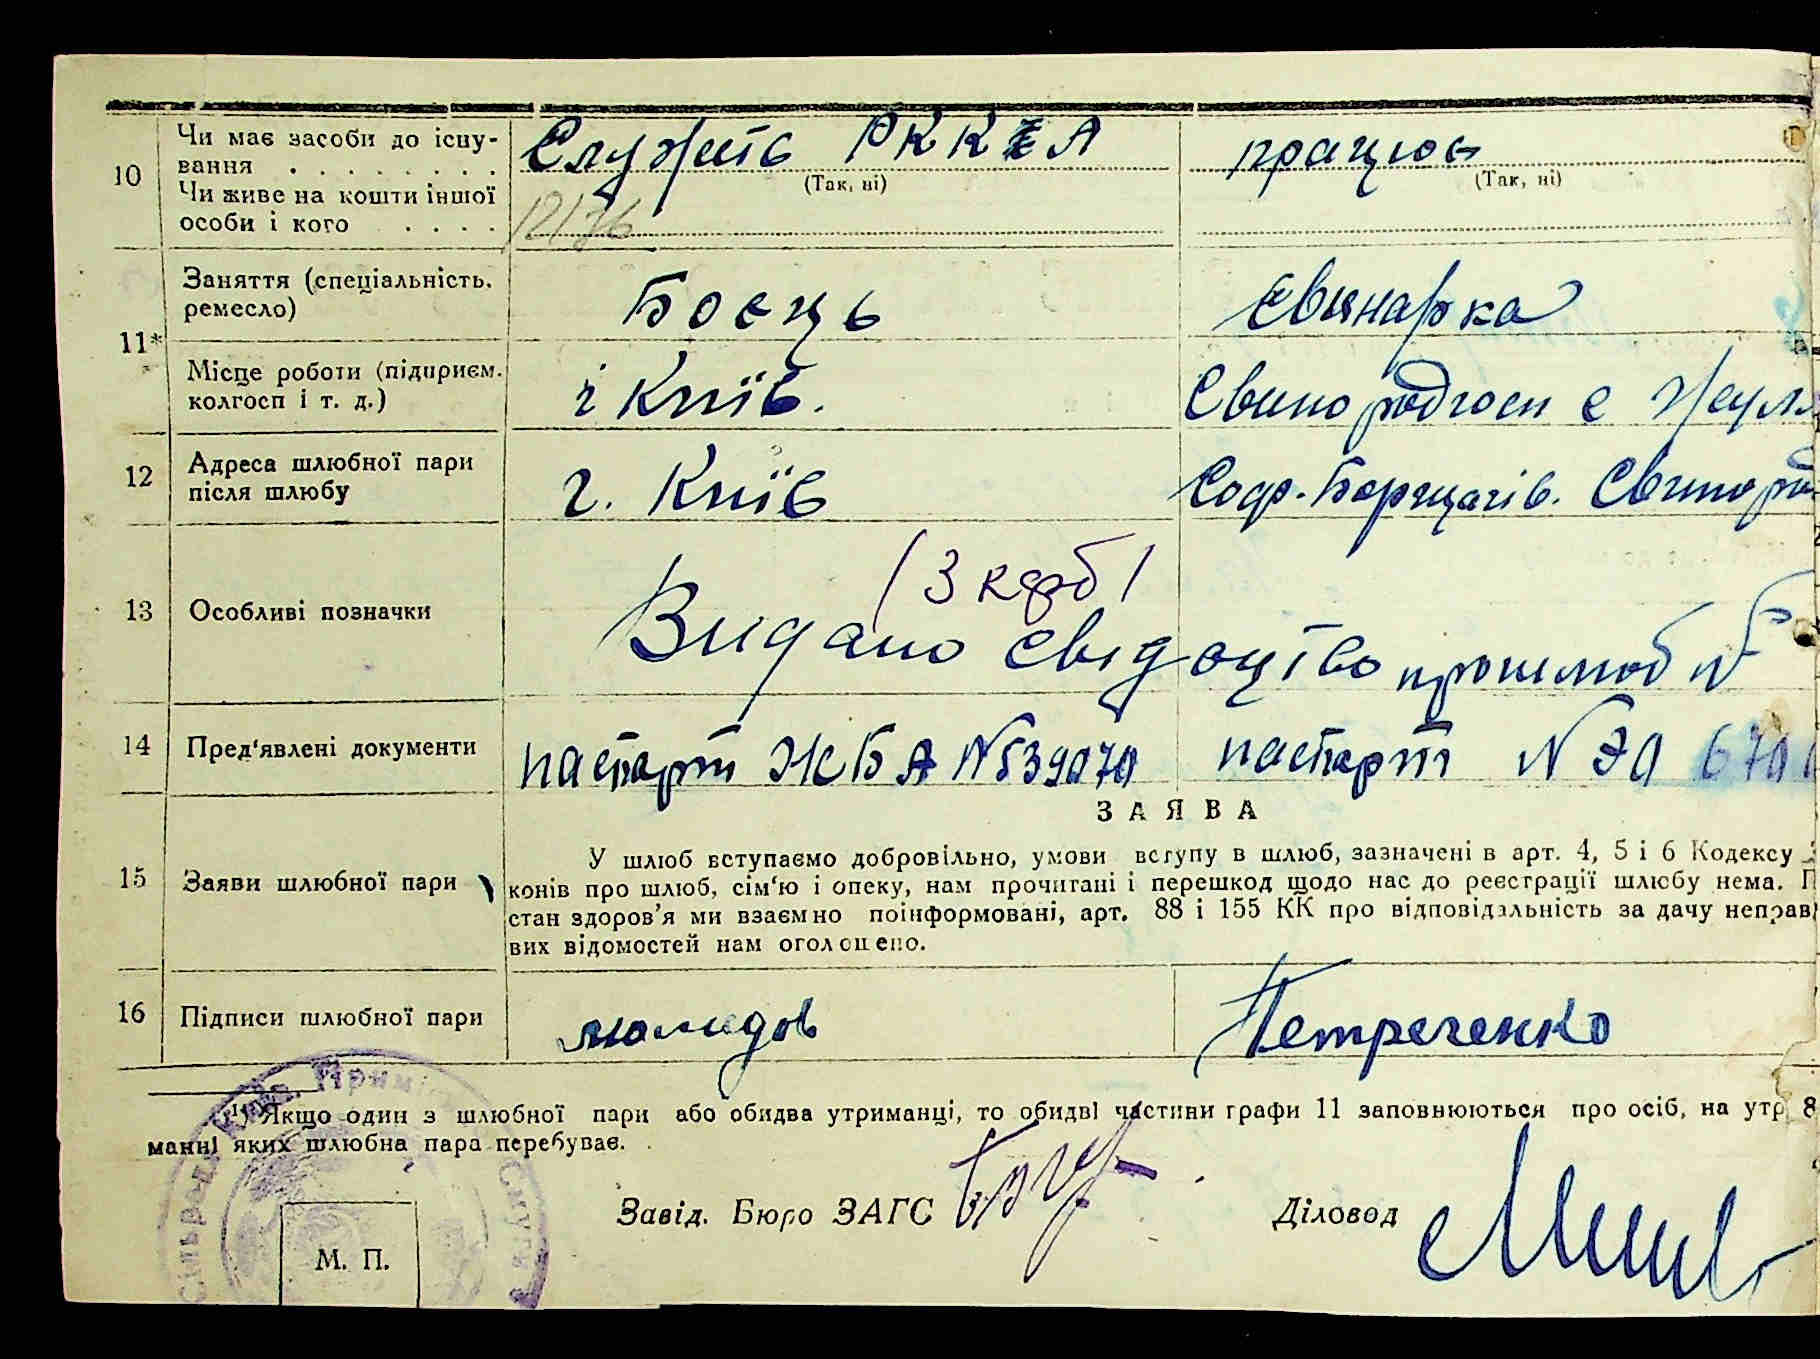 10 Чи має засоби до існу-
вання . . . . . . . . Служить РККА працює
(Так, ні) (Так, ні)
Чи живе на кошти іншої
особи і кого . . . .
12/76
Заняття (спеціальність,
ремесло) Боєць Свинарка
11*
Місце роботи (підприєм.
колгосп і т. д.) г Київ. Свинорадгосп с
12 Адреса шлюбної пари
після шлюбу г. Київ Соф.-Борщагів.
13 Особливі позначки (3 крб)
Видано свідоцтво про шлюб №
14 Пред‘явлені документи паспорт ЖБА № 539070 паспорт №
ЗАЯВА
15 Заяви шлюбної пари
У шлюб вступаємо добровільно, умови вступу в шлюб, зазначені в арт. 4, 5 і 6 Кодексу
конів про шлюб, сім‘ю і опеку, нам прочитані і перешкод щодо нас до реєстрації шлюбу нема.
стан здоров’я ми взаємно поінформовані, арт. 88 і 155 КК про відповідальність за дачу неправ
вих відомостей нам оголошено.
16 Підписи шлюбної пари Петреченко
Якщо один з шлюбної пари або обидва утриманці, то обидві частини графи 11 заповнюються про осіб, на утр
манні яких шлюбна пара перебуває.
Завід. Бюро ЗАГС Діловод
М. П.